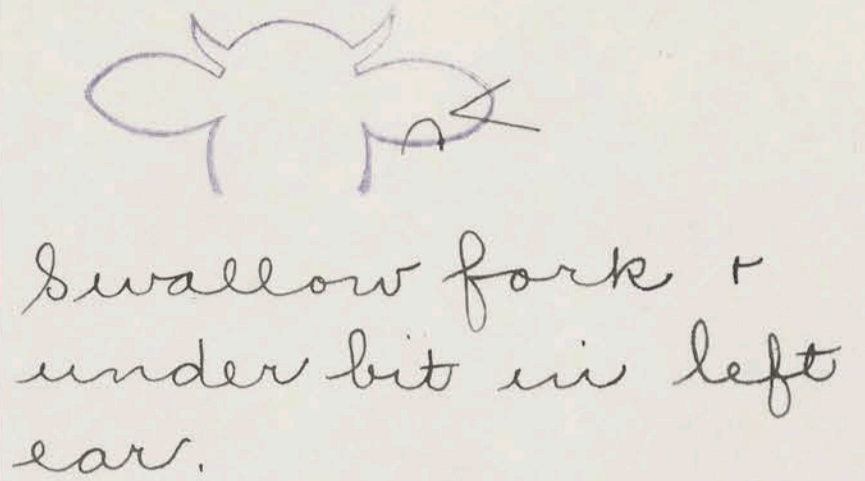 Swallow fork +
under bit in left
ear.